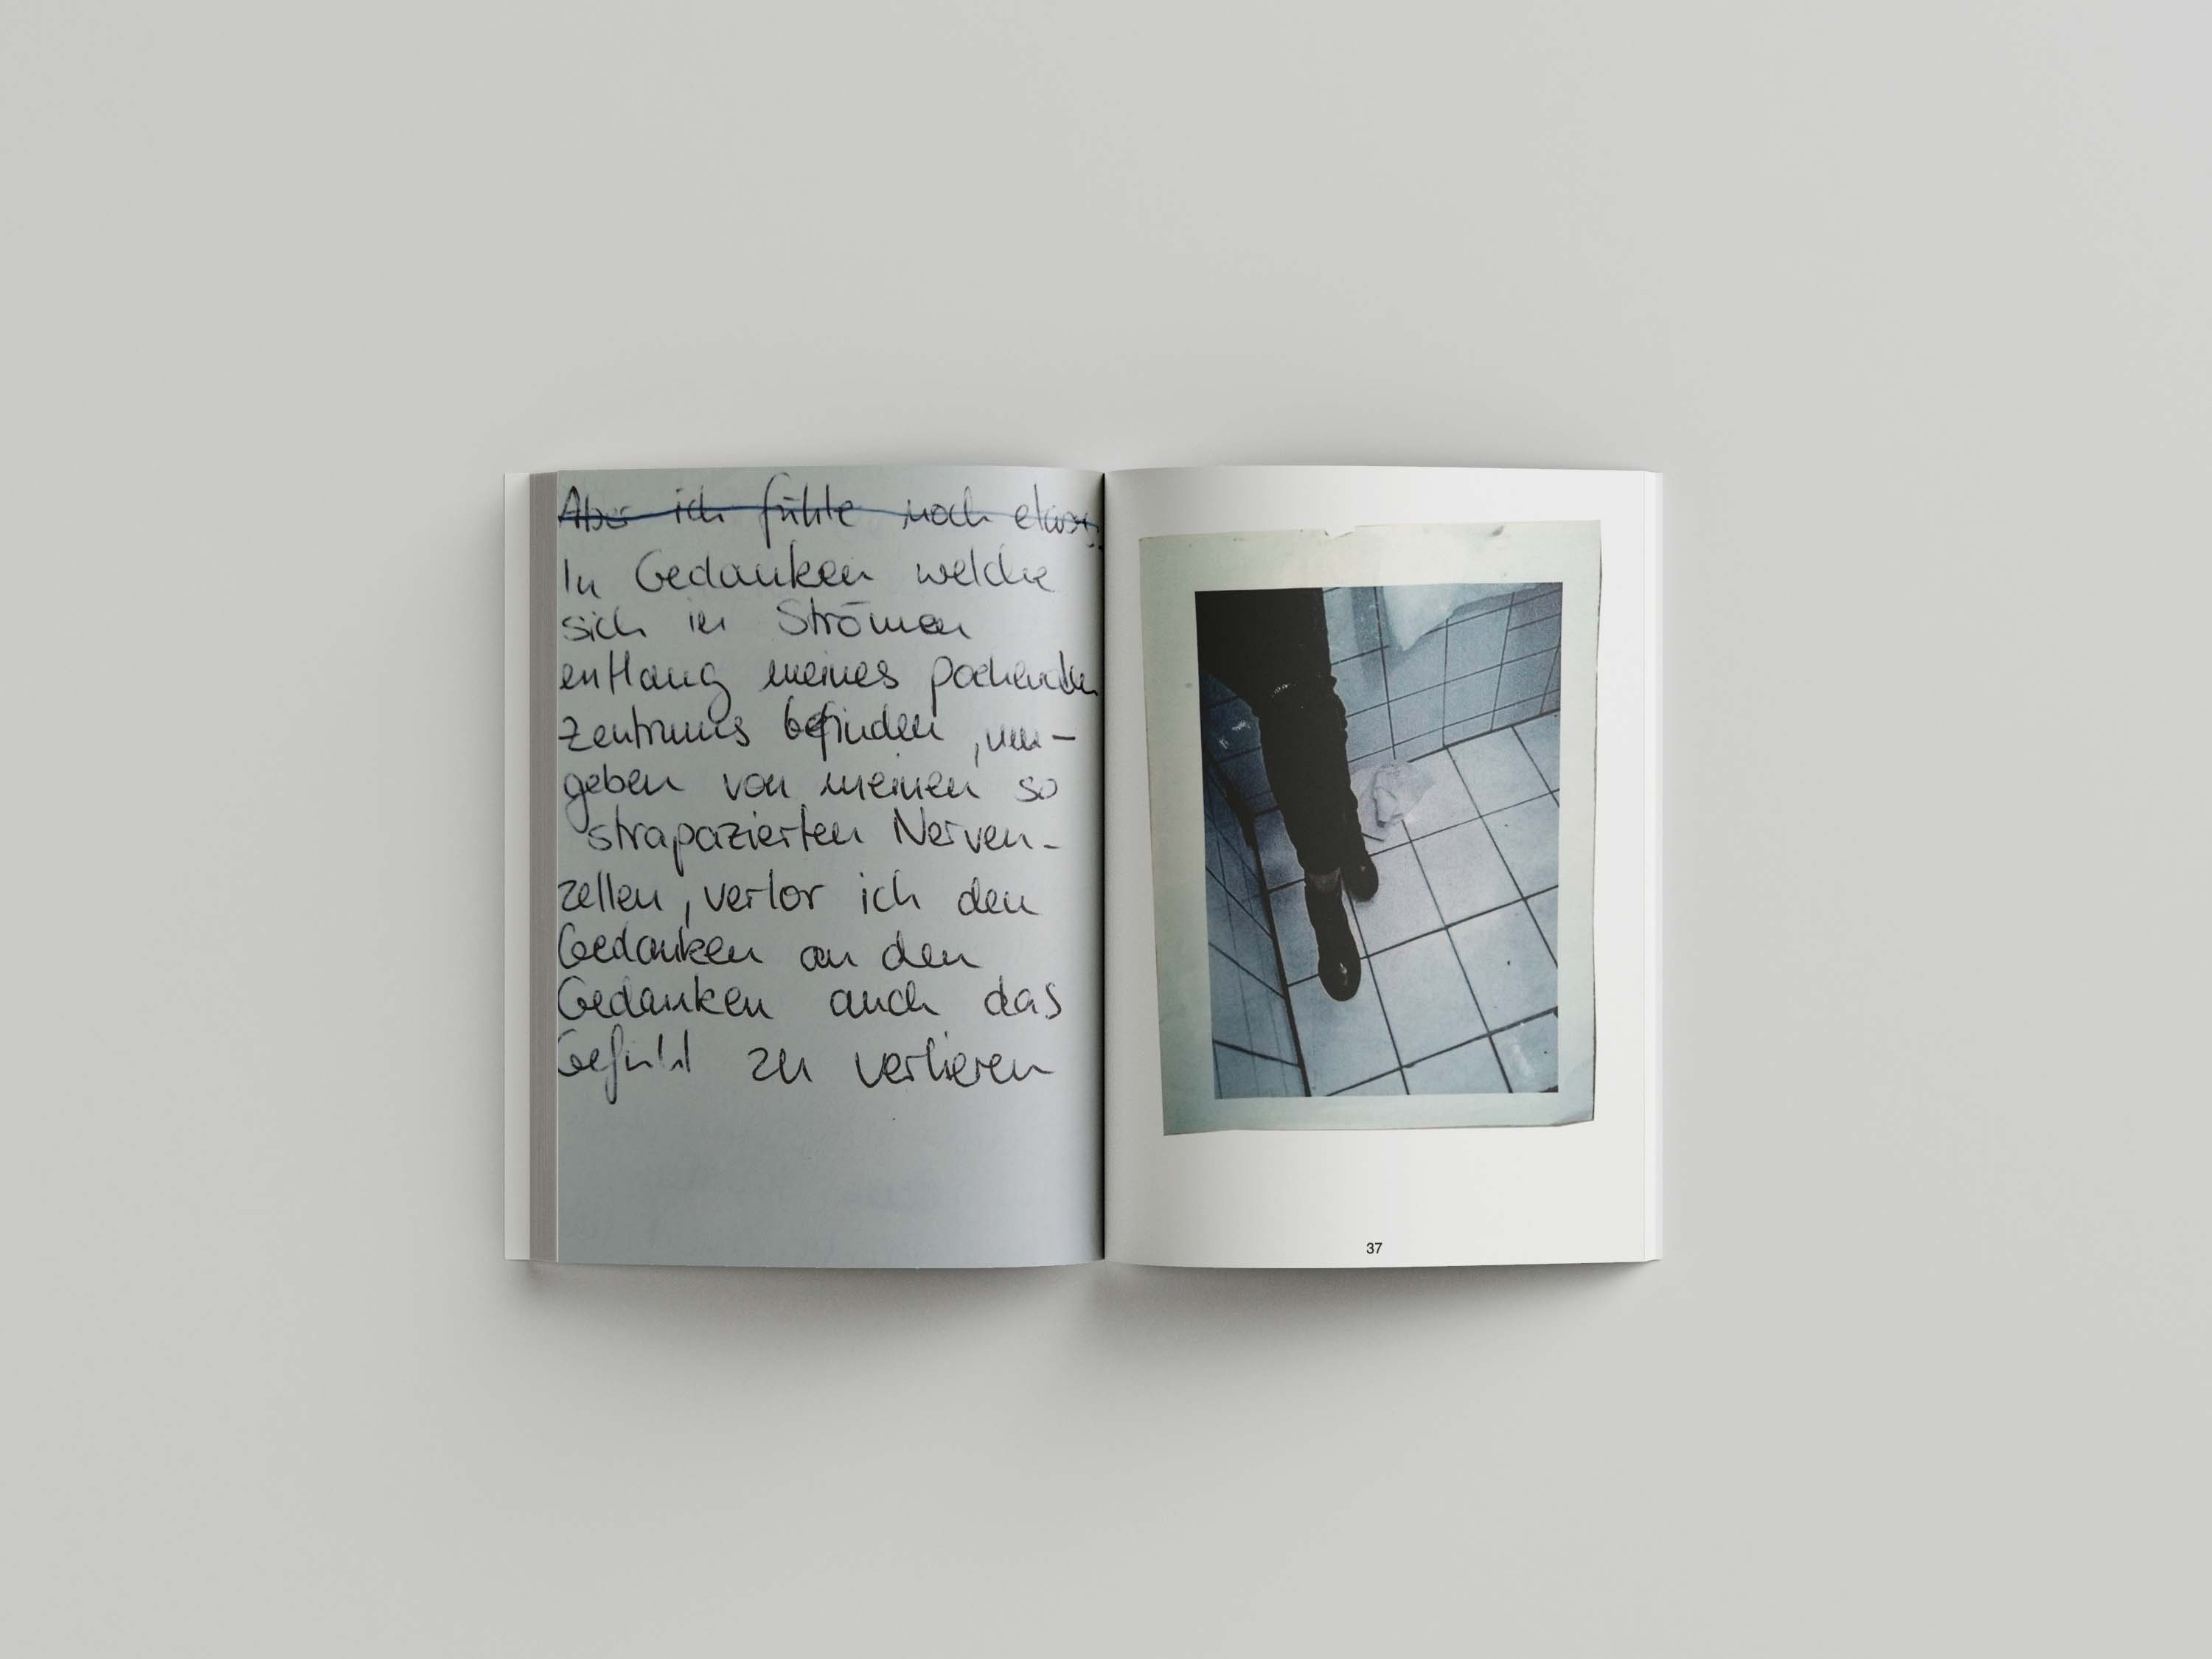 Aber ich fühle noch etwas.
In Gedanken welche
sich in Strömen
entlang meines pochenden
Zentrums befinden, um-
geben von meinen so
strapazierten Nerven-
zellen, verlor ich den
Gedanken an den
Gedanken auch das
Gefühl zu verlieren
37